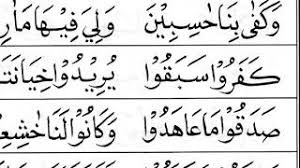 وَكَفٰى بِنَا حٰسِبِيْنَ وَلِيَ فِيْهَا مَاٰرِ
كَفَرُوْا سَبَقُوْا يُرِيْدُوْا خِيَانَتَ
صَدَقُوْا مَا عَاهَدُوْا وَكَانُوْا لَنَا خٰشِعِ